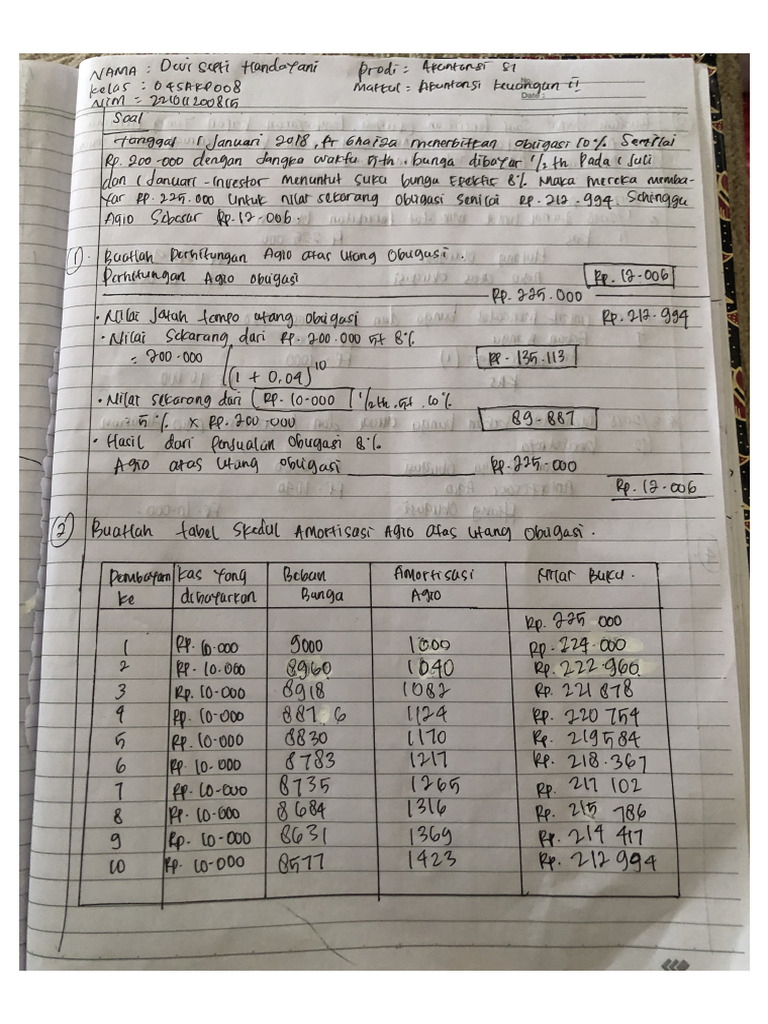 NAMA : Devi Septi Handayani Prodi = Akuntansi S1
Kelas : 04SAKP008 Matkul = Akuntansi Keuangan II
NIM = 221011200815 Date:
Soal
tanggal 1 Januari 2018, Pt Ghaiza menerbitkan obligasi 10% Senilai
Rp. 200.000 dengan Jangka waktu 5th. bunga dibayar 1/2 th Pada 1 Juli
dan 1 Januari - Investor menuntut suku bunga Efektif 8% Maka mereka memba-
yar RP. 225.000 Untuk nilai sekarang obligasi senilai RP. 212.994. Sehingga
Agio Sebesar Rp. 12-006.
1. Buatlah Perhitungan Agio atas Utang Obligasi.
Perhitungan Agio obligasi Rp. 12-006
Rp. 225.000
• Nilai Jatah tempo utang obligasi Rp. 212.994
• Nilai Sekarang dari Rp. 200.000 5t 8%
= 200.000 / (1 + 0,04)^10 Rp - 135.113
• Nilai sekarang dari Rp. 10-000 1/2th. 5t. 10%
= 5% x Rp. 200-000 89-887
• Hasil dari Penjualan Obligasi 8%
Agio atas Utang obligasi Rp. 225.000
Rp. 12-006
2 Buatlah tabel Skedul Amortisasi Agio atas Utang Obligasi.
Pembayaran Ke Kas Yang dibayarkan Beban Bunga Amortisasi Agio Nilai Buku.
Rp. 225 000
1 Rp. 10-000 9000 1000 Rp. 224-000
2 Rp. 10-000 8960 1040 Rp. 222 960
3 Rp. 10-000 8918 1082 Rp. 221 878
4 Rp. 10-000 887.6 1124 Rp. 220 754
5 Rp. 10-000 8830 1170 Rp. 219584
6 Rp. 10-000 8783 1217 Rp. 218.367
7 Rp. 10-000 8735 1265 Rp. 217 102
8 Rp. 10-000 8684 1316 Rp. 215 786
9 Rp. 10-000 8631 1369 Rp. 214 417
10 Rp. 10-000 8577 1423 Rp. 212 994